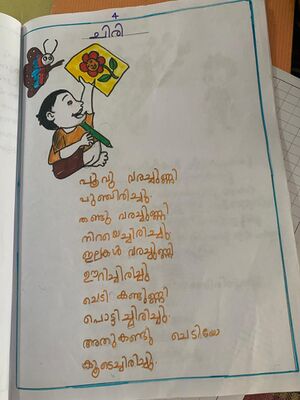 4
ചിരി
പൂവു വരച്ചുണ്ണി
പുഞ്ചിരിച്ചു.
തണ്ടു വരച്ചുണ്ണി
നിറയെച്ചിരിച്ചു.
ഇലകൾ വരച്ചുണ്ണി
ഊറിച്ചിരിച്ചു
ചെടി കണ്ടുണ്ണി
പൊട്ടിച്ചിരിച്ചു.
അതുകണ്ടു ചെടിയോ
കൂടെച്ചിരിച്ചു.